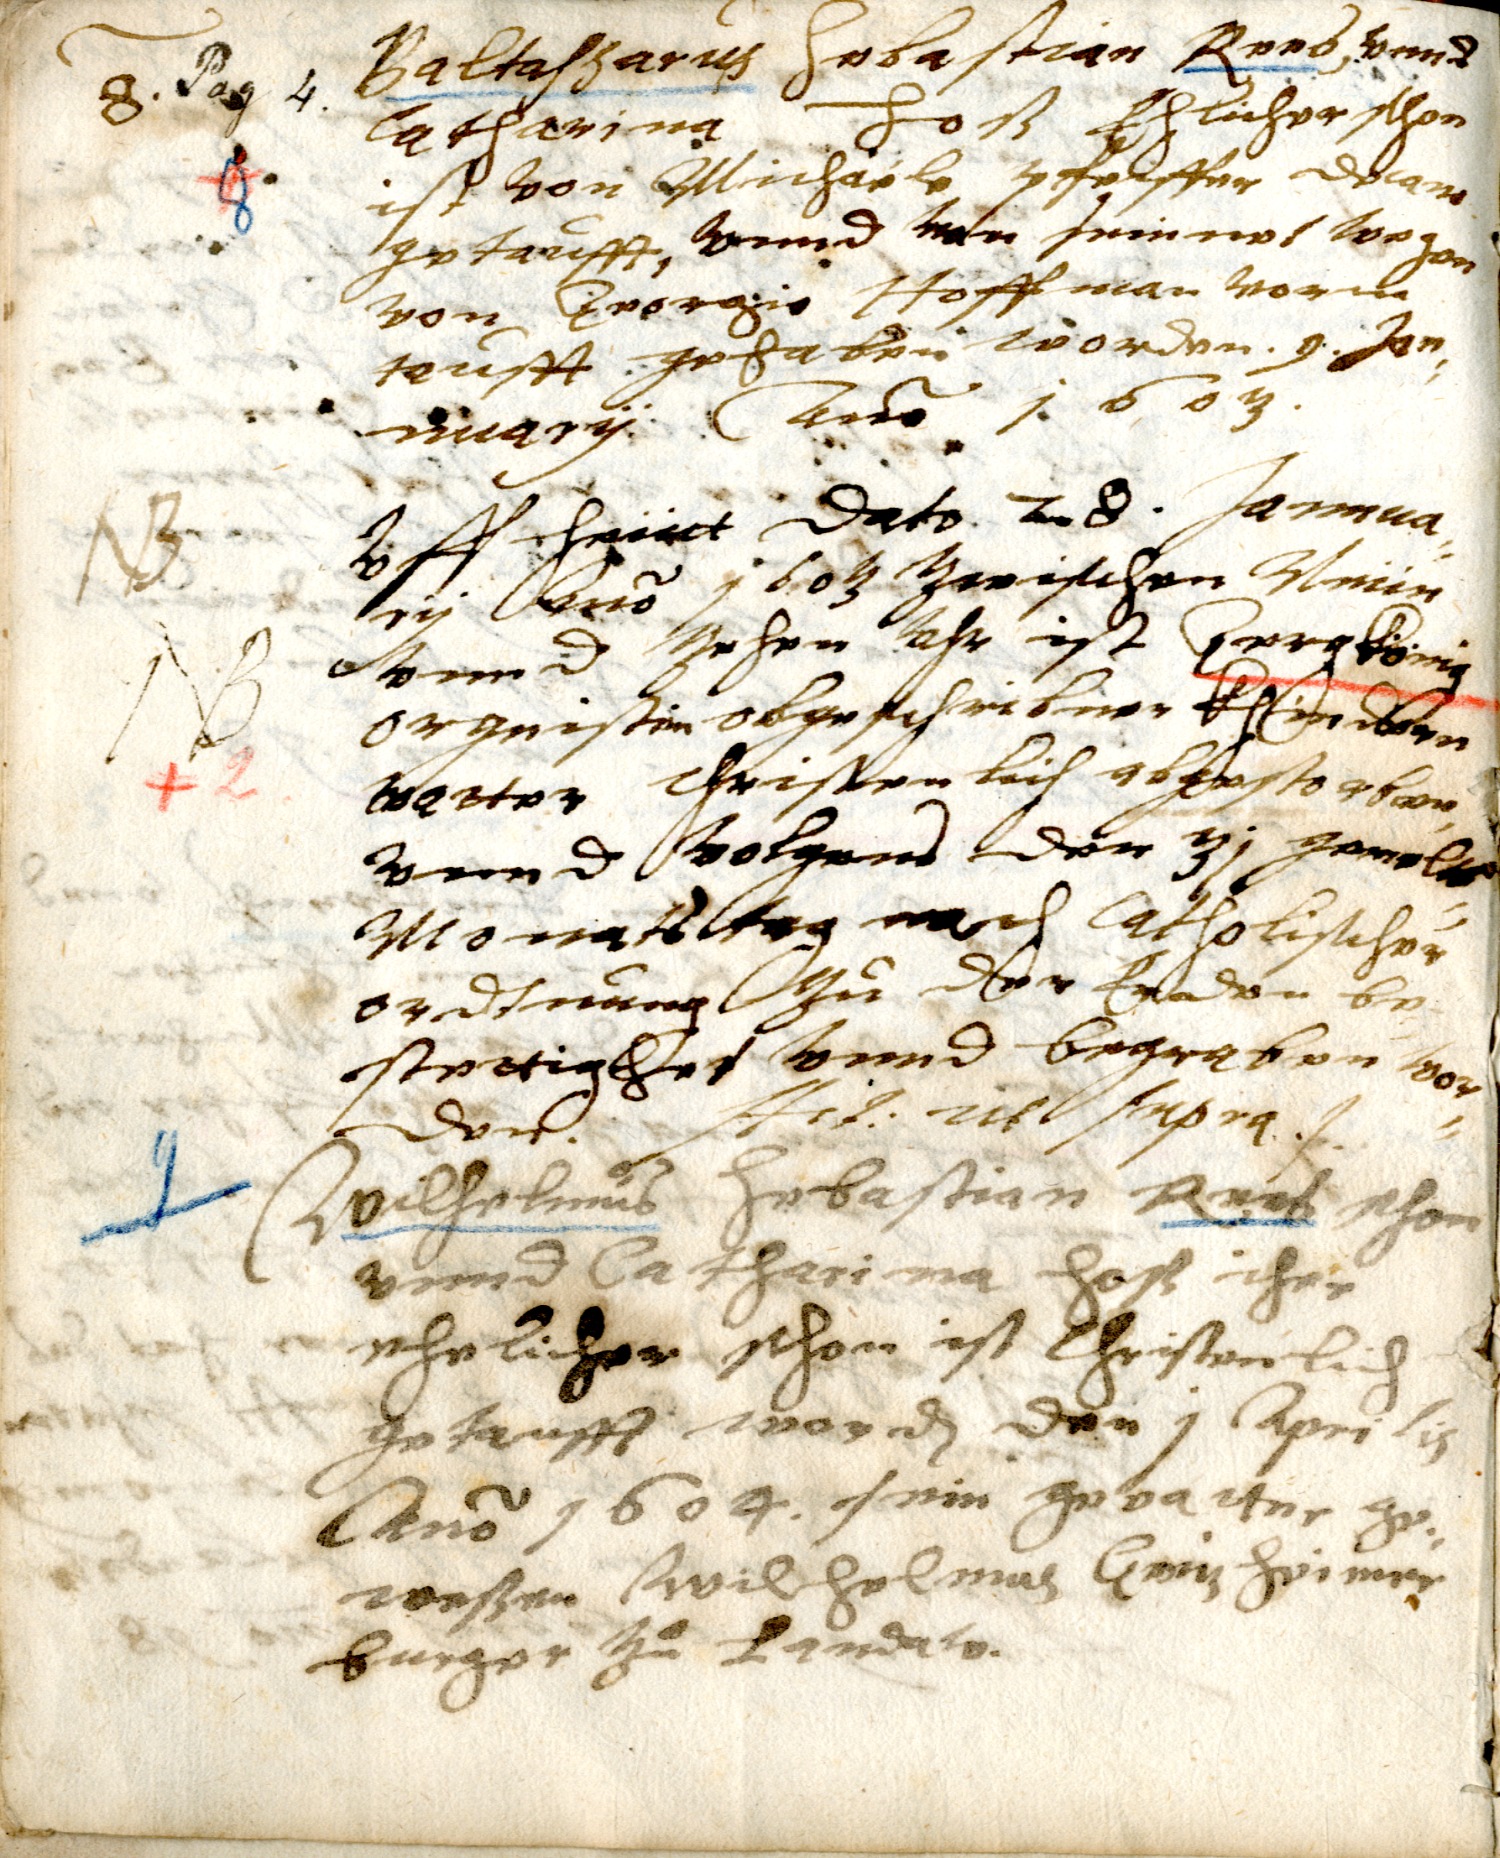 8. Pag 4.
Baltaßarus Sebastian Rees, vnnd
Catharina Hoß Ehlicher sohon
ist von Michaele Pfeiffer Decano
getaufft, vnnd von seinnet wegen
von Georgio Hoffman vorm
taufft gehaben worden. 9. Jan,,
nuarij Annō 1603.
8
NB
Vff heüut Dato 28. Jannua,,
rij Annō 1603 Zwischen Neün
vnnd Zehen Vhr ist Georg König
Organisten obgeschribner
vatter Christenlich abgestorben,
vnnd volgens den 31 gemelts
Monats tag nach Catholischer
ordtnung Zu der Erden be
stettighet vnnd begraben wor,,
den. Act. ut supra.
NB
+ 2
9
Wilhelmus Sebastian Rees sohon
vnnd Catharina Hoß ihrr
ehelicher sohon ist Christenlich
getaufft word den 1 Aprilis
Annō 1604. sein gevatter ge,,
weßen Wilhelmus
burger Zu Landaw.